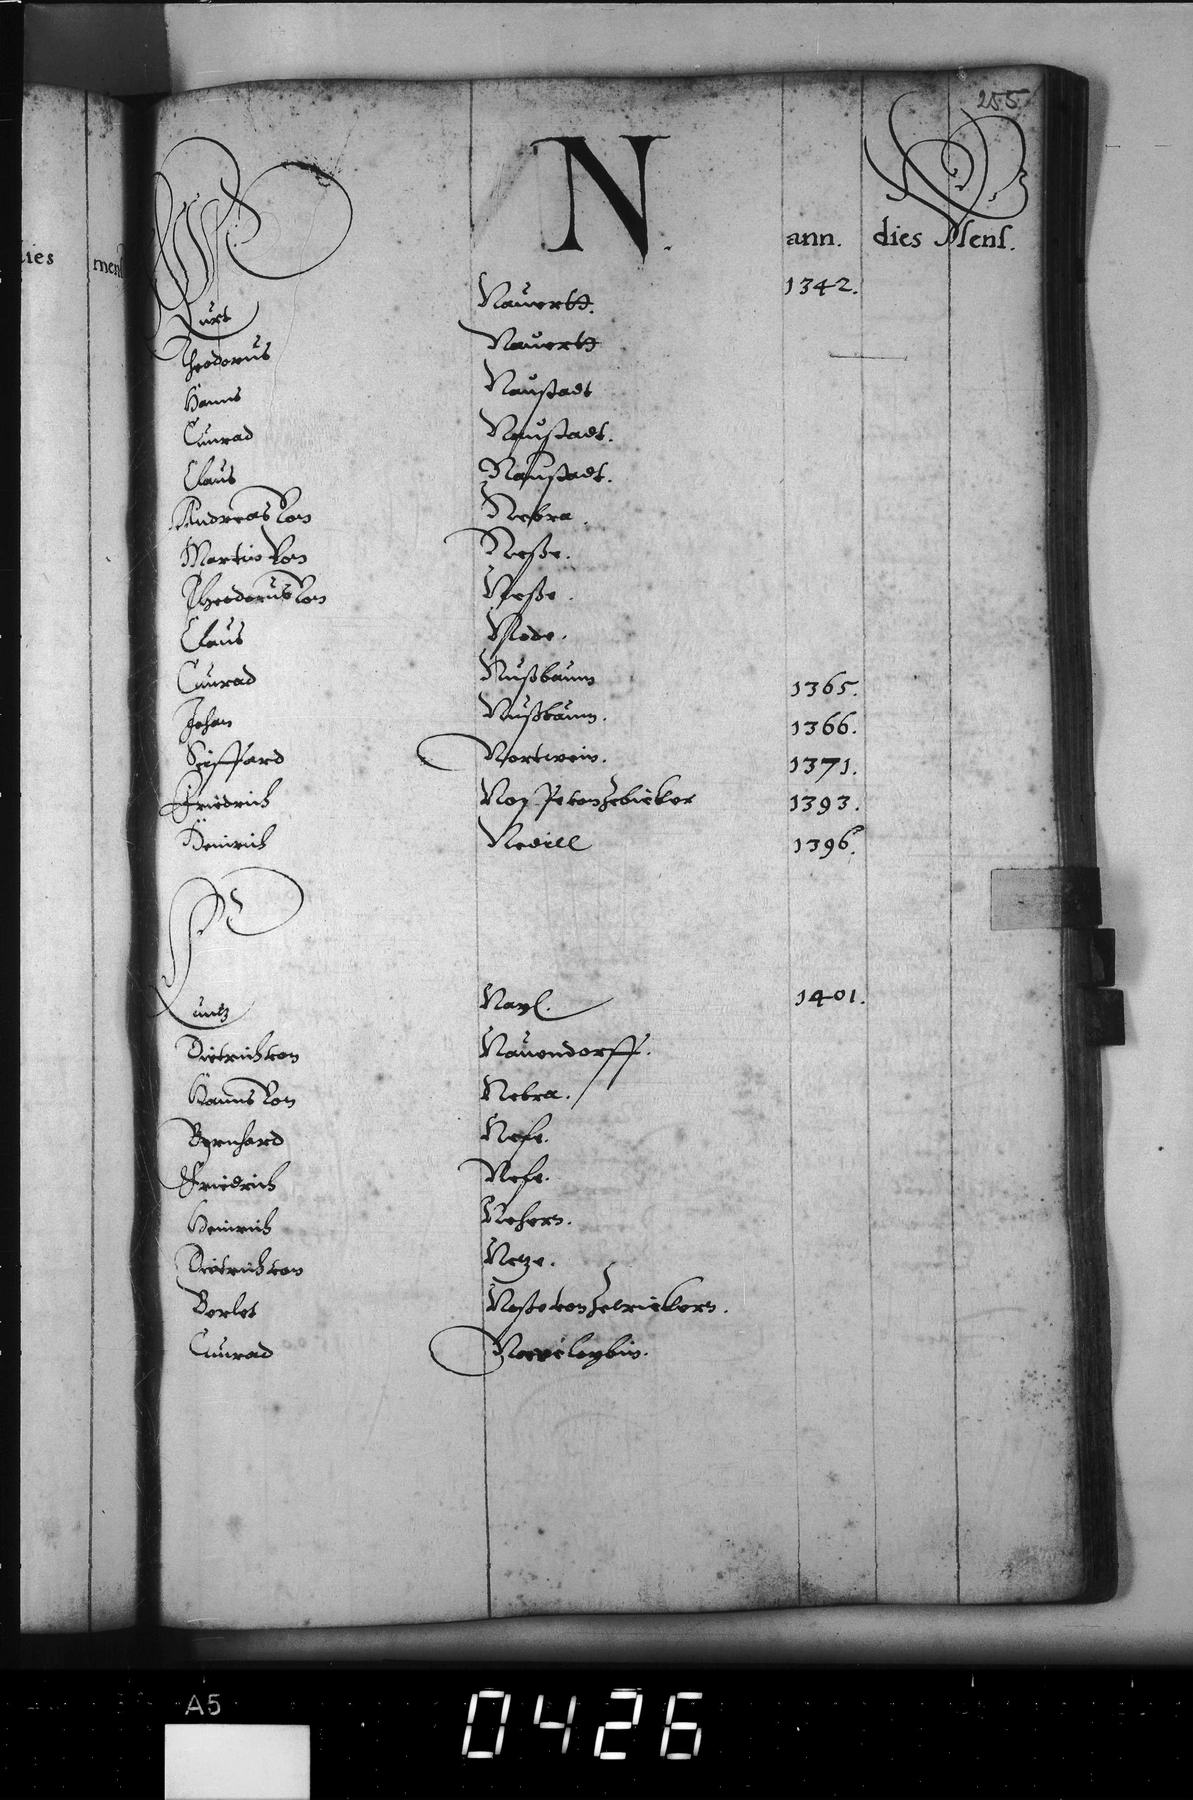 255
N.
ann. dies Mens.
dies mens
Curt Nauertt. 1342.
Theodorus Nauertt
Hanns Naustadt
Cunrad Naustadt.
Claus Naustadt.
Andreas Von Nebra.
Martin Von Nesse.
Theodorus Von Nesse.
Claus Node.
Cunrad Nußbaum 1365.
Johan Nußbaum. 1366.
Seiffard Nortwein. 1371.
Friedrich 1393.
Heinrich Nedill 1396.
Cuntz Nayl. 1401.
Dietrich von Nauendorff.
Hanns Von Nebra.
Bernhard Nefe.
Friedrich Nefe.
Heinrich Nehern.
Dietrich von Netze.
Berlet
Cunrad
A5
0426